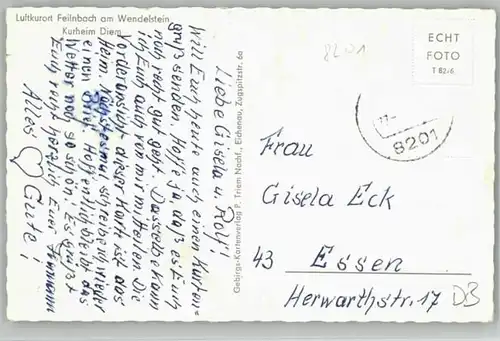 Luftkurort Feilnbach am Wendelstein
Kurheim Diem
8201
ECHT
FOTO
T 82/6
Liebe Gisela u. Rolf!
Will Euch heute auch einen Karten-
gruß senden. Hoffe ja, daß es Euch
noch recht gut geht. Dasselbe kann
ich Euch auch von mir mitteilen. Die
Vorderansicht dieser Karte ist das
Heim. Nächstesmal schreibe ich wieder
einen Brief. Hoffentlich bleibt das
Wetter noch so schön. Es grüßt
Euch recht herzlich Euer Hermann
Alles Gute!
Gebirgs-Kartenverlag P. Triem Nachf., Eichenau, Zugspitzstr. 6a
8201
Frau
Gisela Eck
43 Essen
Herwarthstr. 17
DB